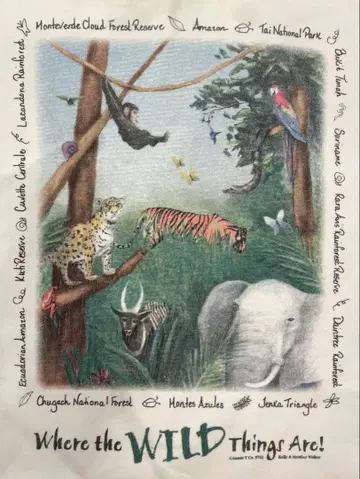 Monteverde Cloud Forest Reserve Amazon Tai National Park
Bukit Timah
Suriname
Rara Avis Rainforest Reserve
Daintree Rainforest
Jenka Triangle
Montes Azules
Chugach National Forest
Ecuadorian Amazon
Kati Reserve
Cauvette Centrale
Lacandona Rainforest
Where the WILD Things Are!
Kelly & Heather Walker